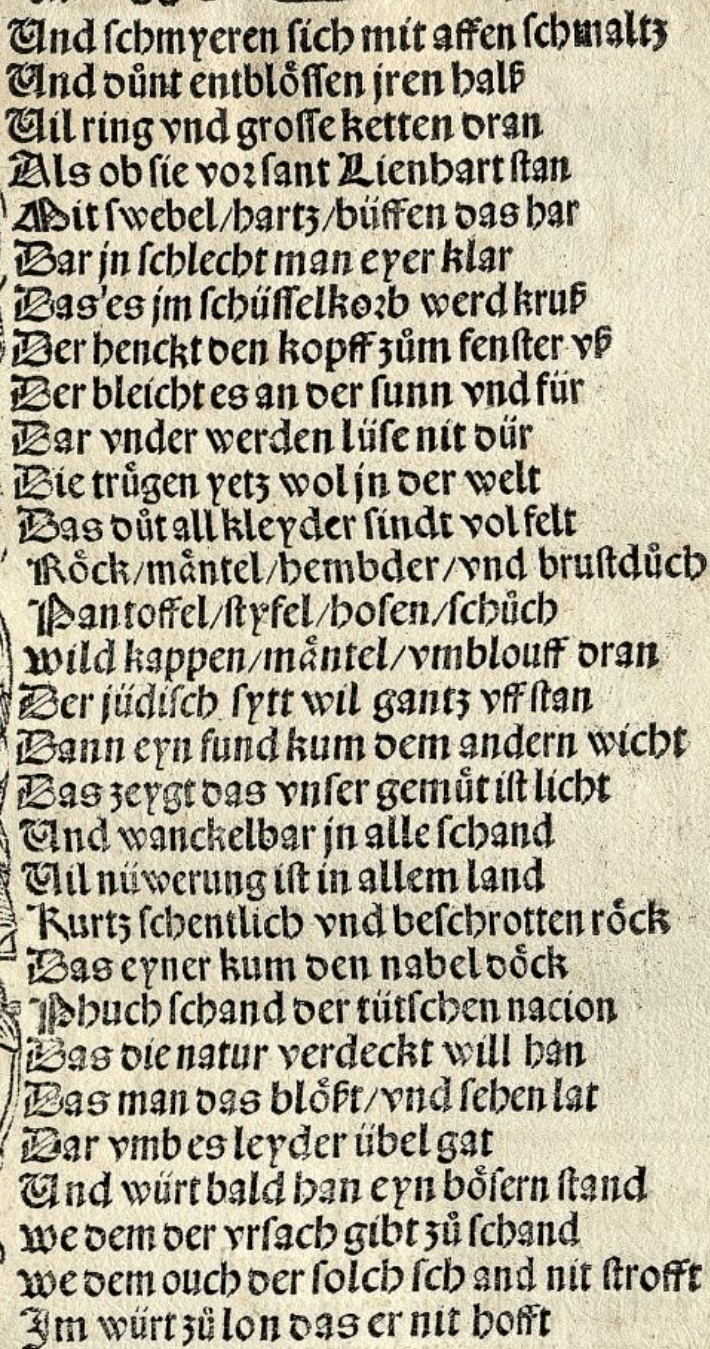 Und schmyeren sich mit affen schmaltz
Und důnt entblössen jren halß
Uil ring vnd grosse ketten dran
Als ob sie vor sant Lienhart stan
Mit swebel/hartz/büffen das har
Dar jn schlecht man eyer klar
Das es jm schüsselkorb werd kruß
Der henckt den kopff zům fenster vß
Der bleicht es an der sunn vnd für
Dar vnder werden lüse nit dür
Die trůgen yetz wol jn der welt
Das důt all kleyder sindt vol felt
Röck/mäntel/hembder/vnd brustdůch
Pantoffel/styfel/hosen/schůch
wild kappen/mäntel/vmblouff dran
Der jüdisch sytt wil gantz vff stan
Dann eyn fund kum dem andern wicht
Das zeygt das vnser gemůt ist licht
Und wanckelbar jn alle schand
Uil nüwerung ist in allem land
Kurtz schentlich vnd beschrotten röck
Das eyner kum den nabel döck
Phuch schand der tütschen nacion
Das die natur verdeckt will han
Das man das blößt/vnd sehen lat
Dar vmb es leyder übel gat
Und würt bald han eyn bösern stand
we dem der vrsach gibt zů schand
we dem ouch der solch schand nit strofft
Jm würt zů lon das er nit hofft